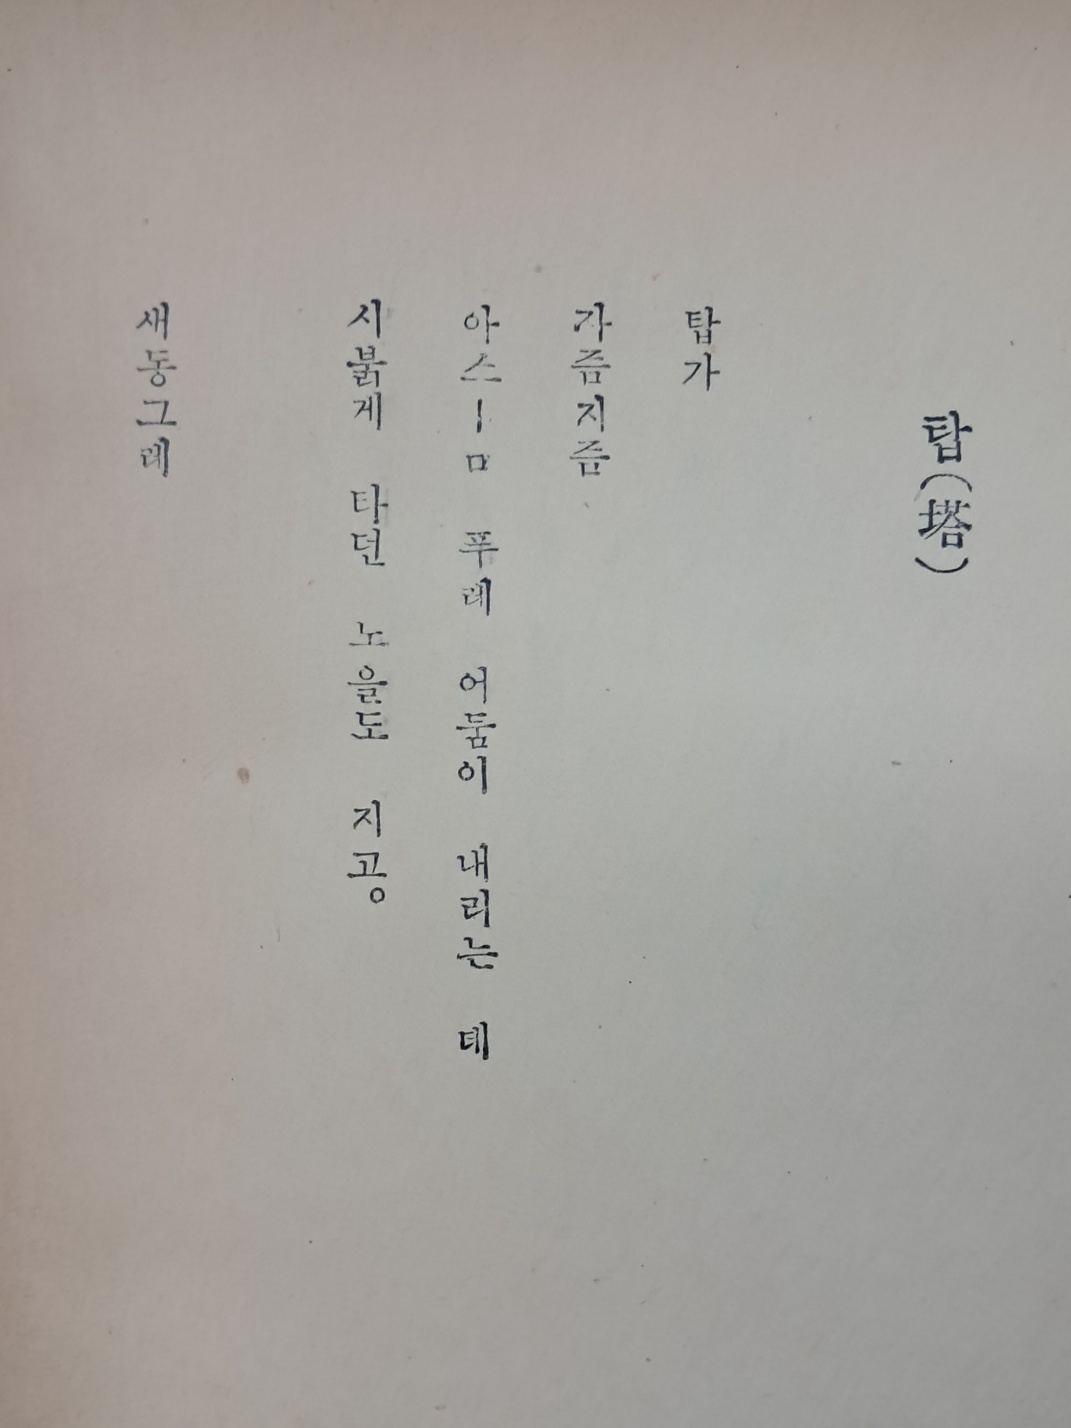 탑(塔)
탑가
자즘지즘
아스ㅣㅁ 푸레 어둠이 내리는 테
시붉게 타던 노을도 지고。
새동그레